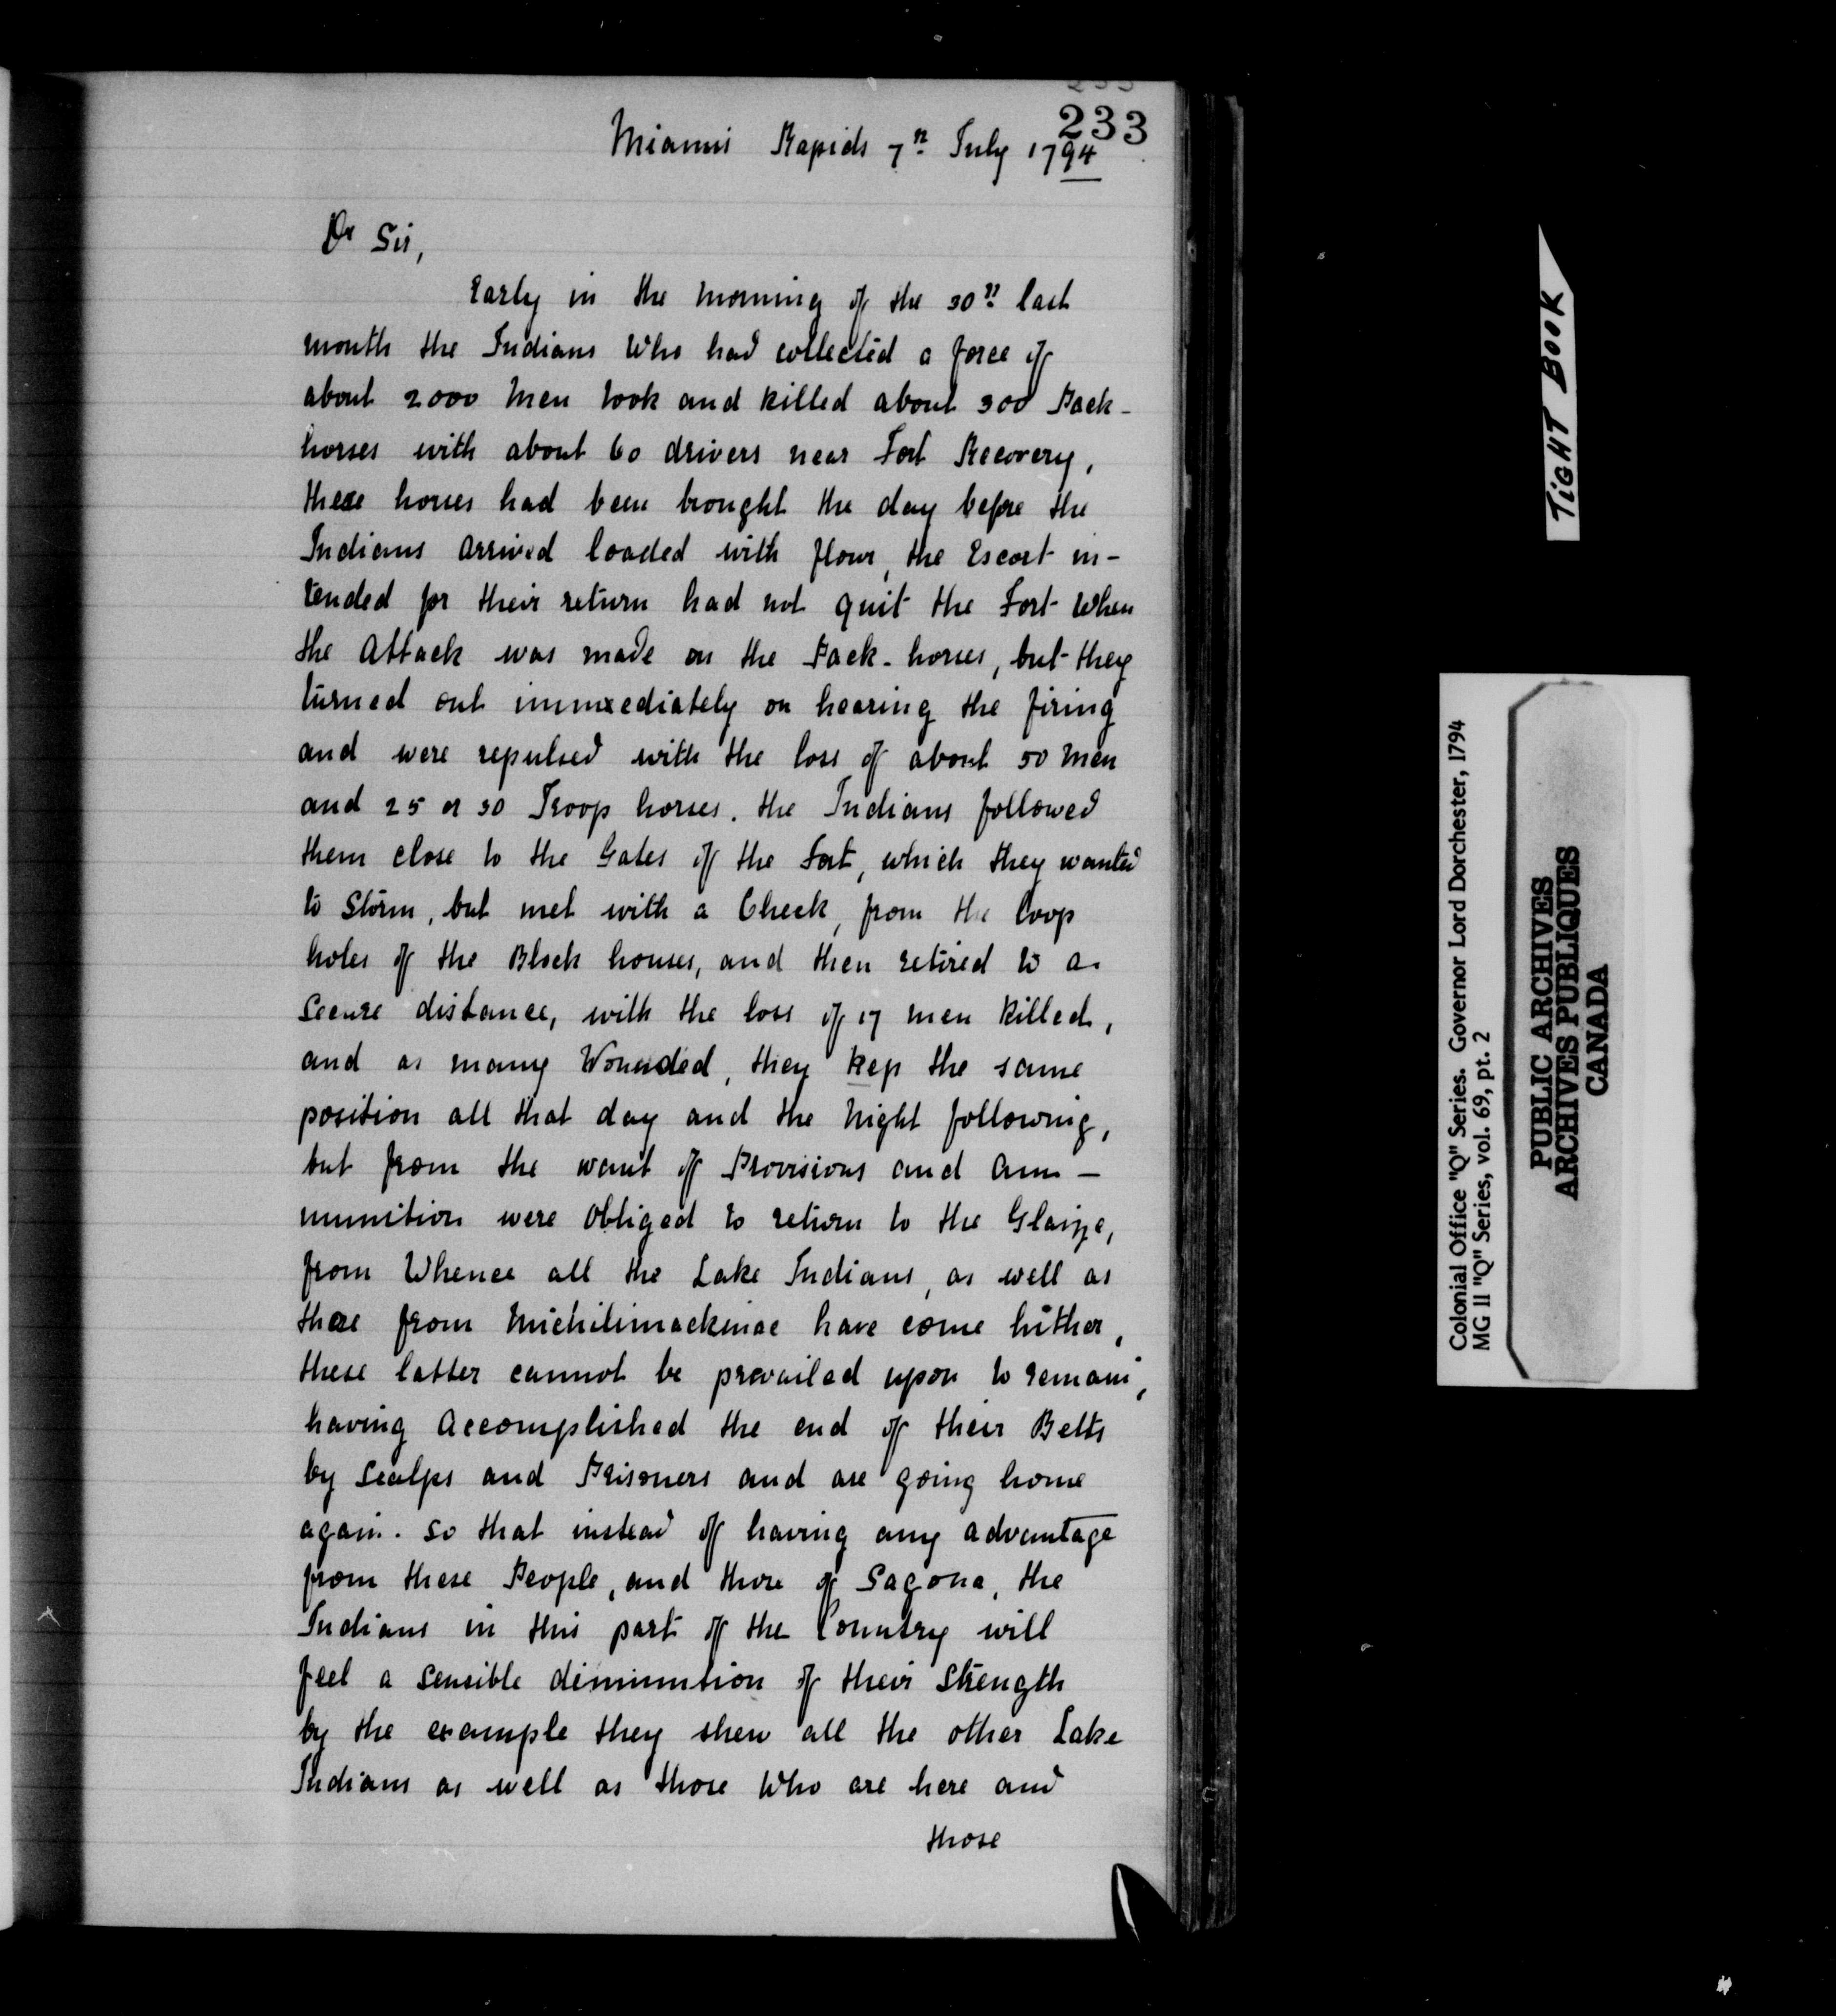 233
Miamis Rapids 7th July 1794
Dr Sir,
Early in the morning of the 30th last
month the Indians Who had collected a force of
about 2000 Men took and killed about 300 Pack-
horses with about 60 drivers near Fort Recovery,
these horses had been brought the day before the
Indians arrived loaded with flour, the Escort in-
tended for their return had not quit the Fort When
the Attack was made on the Pack-horses, but they
turned out immediately on hearing the firing
and were repulsed with the loss of about 50 Men
and 25 or 30 Troop horses. the Indians followed
them close to the Gates of the Fort, which they wanted
to Storm, but met with a Check, from the loop
holes of the Block houses, and then retired to a
Secure distance, with the loss of 17 men killed,
and as many Wounded, they kep the same
position all that day and the Night following,
but from the want of Provisions and Am-
munition were obliged to return to the Glaize,
from Whence all the Lake Indians, as well as
those from Michilimackinac have come hither,
these latter cannot be prevailed upon to remain,
having accomplished the end of their Belts
by Scalps and Prisoners and are going home
again. so that instead of having any advantage
from these People, and those of Sagona, the
Indians in this part of the Country will
feel a sensible diminution of their Strength
by the example they shew all the other Lake
Indians as well as those Who are here and
those
TIGHT BOOK
Colonial Office "Q" Series. Governor Lord Dorchester, 1794
MG 11 "Q" Series, vol. 69, pt. 2
PUBLIC ARCHIVES
ARCHIVES PUBLIQUES
CANADA